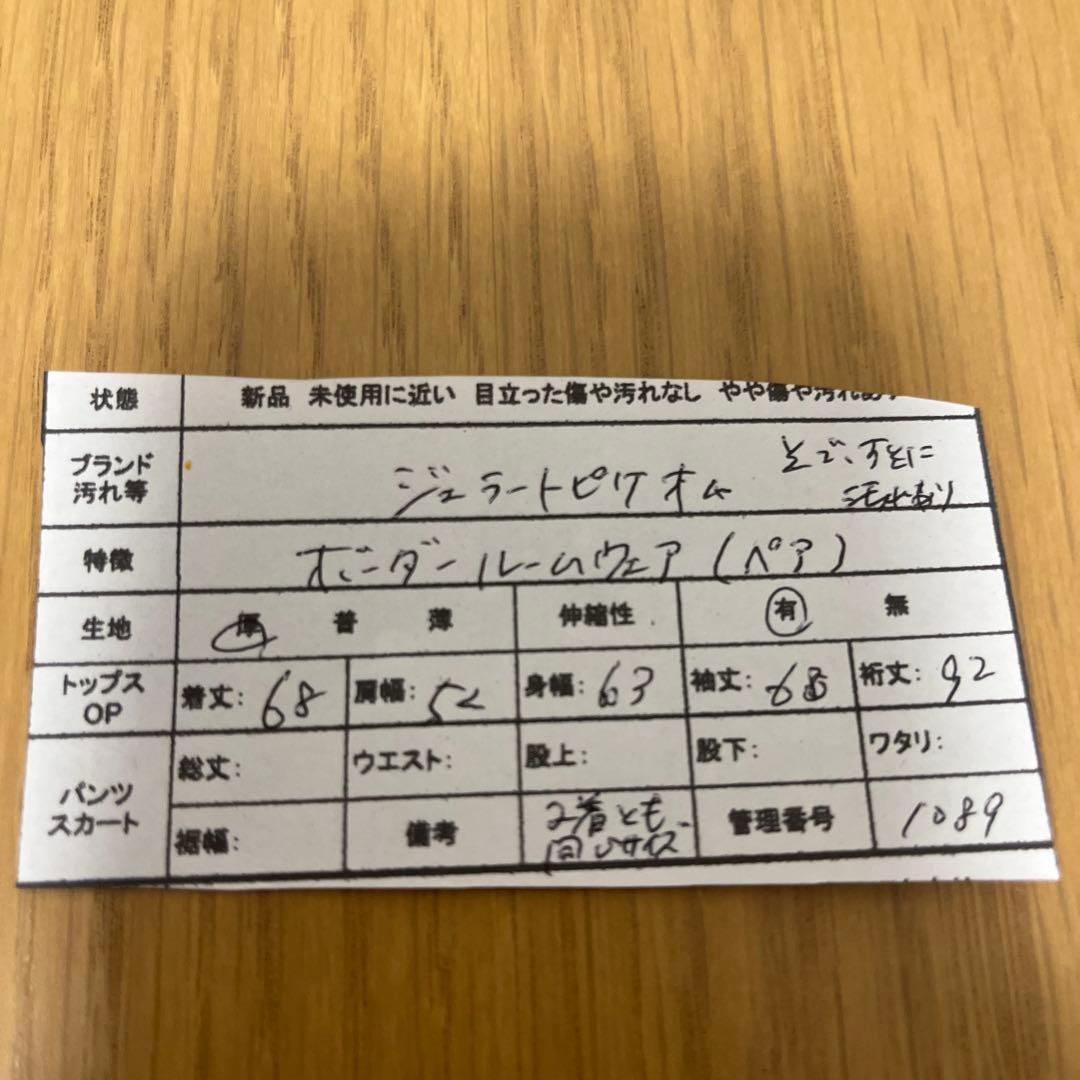 状態 新品 未使用に近い 目立った傷や汚れなし やや傷や汚れあり
ブランド
汚れ等 ジェラートピケオム そで、すそに
汚れあり
特徴 ボーダールームウェア(ペア)
生地 厚 普 薄 伸縮性 有 無
トップス
OP 着丈: 68 肩幅: 52 身幅: 63 袖丈: 裄丈: 92
パンツ
スカート 総丈: ウエスト: 股上: 股下: ワタリ:
裾幅: 備考 2着とも、
同じサイズ 管理番号 1089